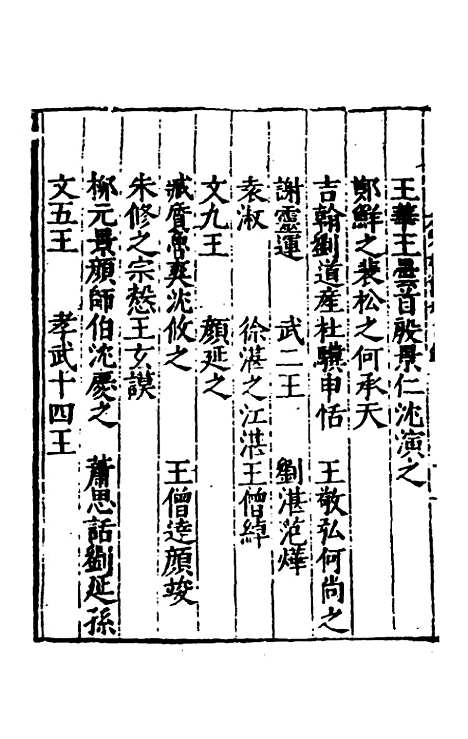 王華王曇首殷景仁沈演之
鄭鮮之裴松之何承天
吉翰劉道産杜驥申恬 王敬弘何尚之
謝靈運 武二王 劉湛范燁
袁淑 徐湛之江湛王僧綽
文九王 顏延之
臧質魯爽沈攸之 王僧達顏竣
朱修之宗慤王玄謨
柳元景顏師伯沈慶之 蕭思話劉延孫
文五王 孝武十四王